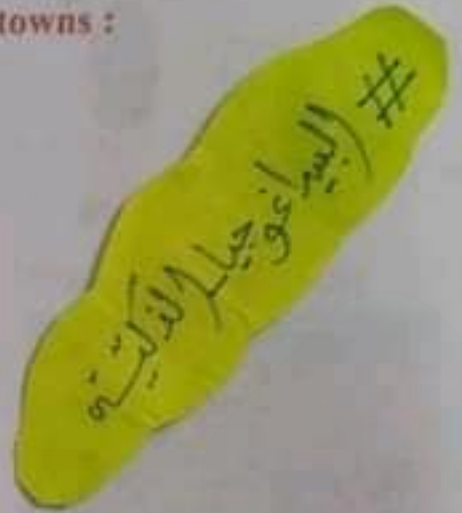 towns :
# البيداغوجيا_الذكية